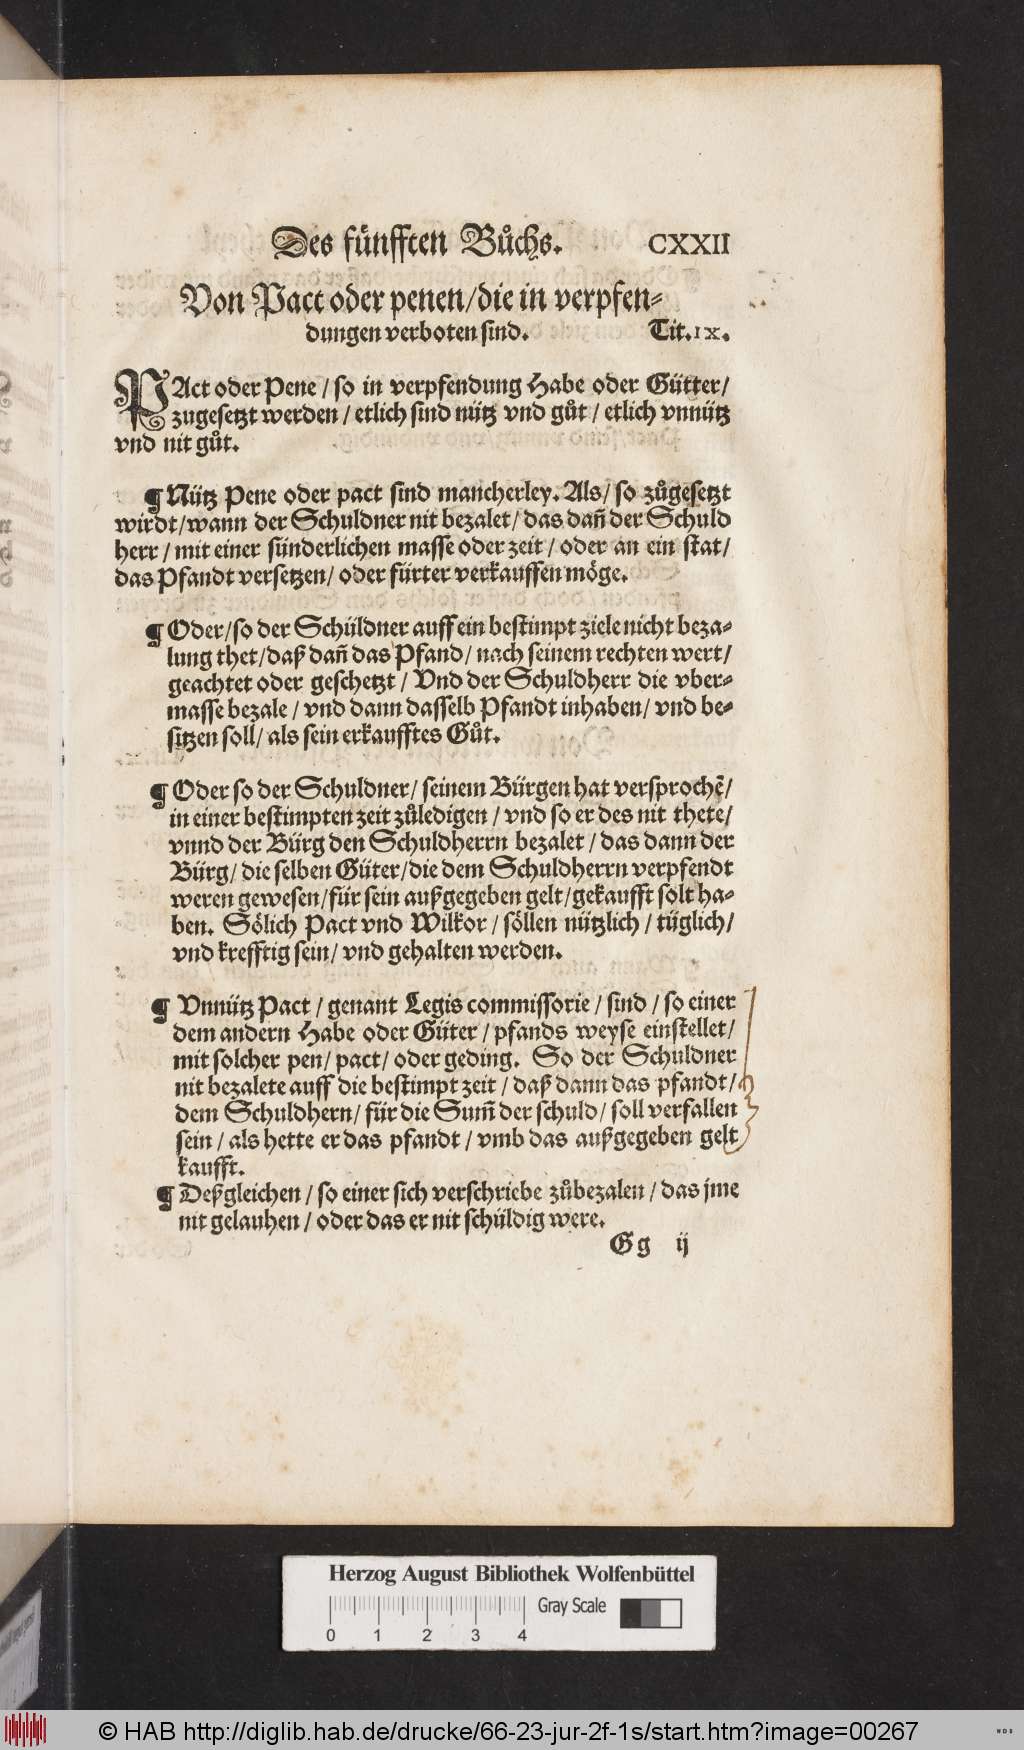 Des fünfften Bůchs. CXXII
Von Pact oder penen/die in verpfen-
dungen verboten sind. Tit.IX.
PAct oder Pene / so in verpfendung Habe oder Gütter/
zugesetzt werden / etlich sind nütz vnd gůt / etlich vnnütz
vnd nit gůt.
¶ Nütz Pene oder pact sind mancherley. Als/ so zůgesetzt
wirdt/wann der Schuldner nit bezalet/ das dañ der Schuld
herr / mit einer sünderlichen masse oder zeit / oder an ein stat/
das Pfandt versetzen/ oder fürter verkauffen möge.
¶ Oder/so der Schüldner auff ein bestimpt ziele nicht beza-
lung thet/daß dañ das Pfand/ nach seinem rechten wert/
geachtet oder geschetzt / Vnd der Schuldherr die vber-
masse bezale / vnd dann dasselb Pfandt inhaben/ vnd be-
sitzen soll/ als sein erkaufftes Gůt.
¶ Oder so der Schuldner/ seinem Bürgen hat versprochẽ/
in einer bestimpten zeit zůledigen / vnd so er des nit thete/
vnnd der Bürg den Schuldherrn bezalet / das dann der
Bürg/ die selben Güter/die dem Schuldherrn verpfendt
weren gewesen/für sein außgegeben gelt/gekaufft solt ha-
ben. Sölich Pact vnd Wilkor / söllen nützlich / tüglich/
vnd krefftig sein/ vnd gehalten werden.
¶ Vnnütz Pact / genant Legis commissorie / sind / so einer
dem andern Habe oder Güter / pfands weyse einstellet/
mit solcher pen/ pact/ oder geding. So der Schuldner
nit bezalete auff die bestimpt zeit / daß dann das pfandt/
dem Schuldhern/ für die Sum̃ der schuld/ soll verfallen
sein / als hette er das pfandt / vmb das außgegeben gelt
kaufft.
¶ Deßgleichen / so einer sich verschriebe zůbezalen / das jme
nit gelauhen / oder das er nit schüldig were.
Gg ij
Herzog August Bibliothek Wolfenbüttel
Gray Scale
0 1 2 3 4
© HAB http://diglib.hab.de/drucke/66-23-jur-2f-1s/start.htm?image=00267